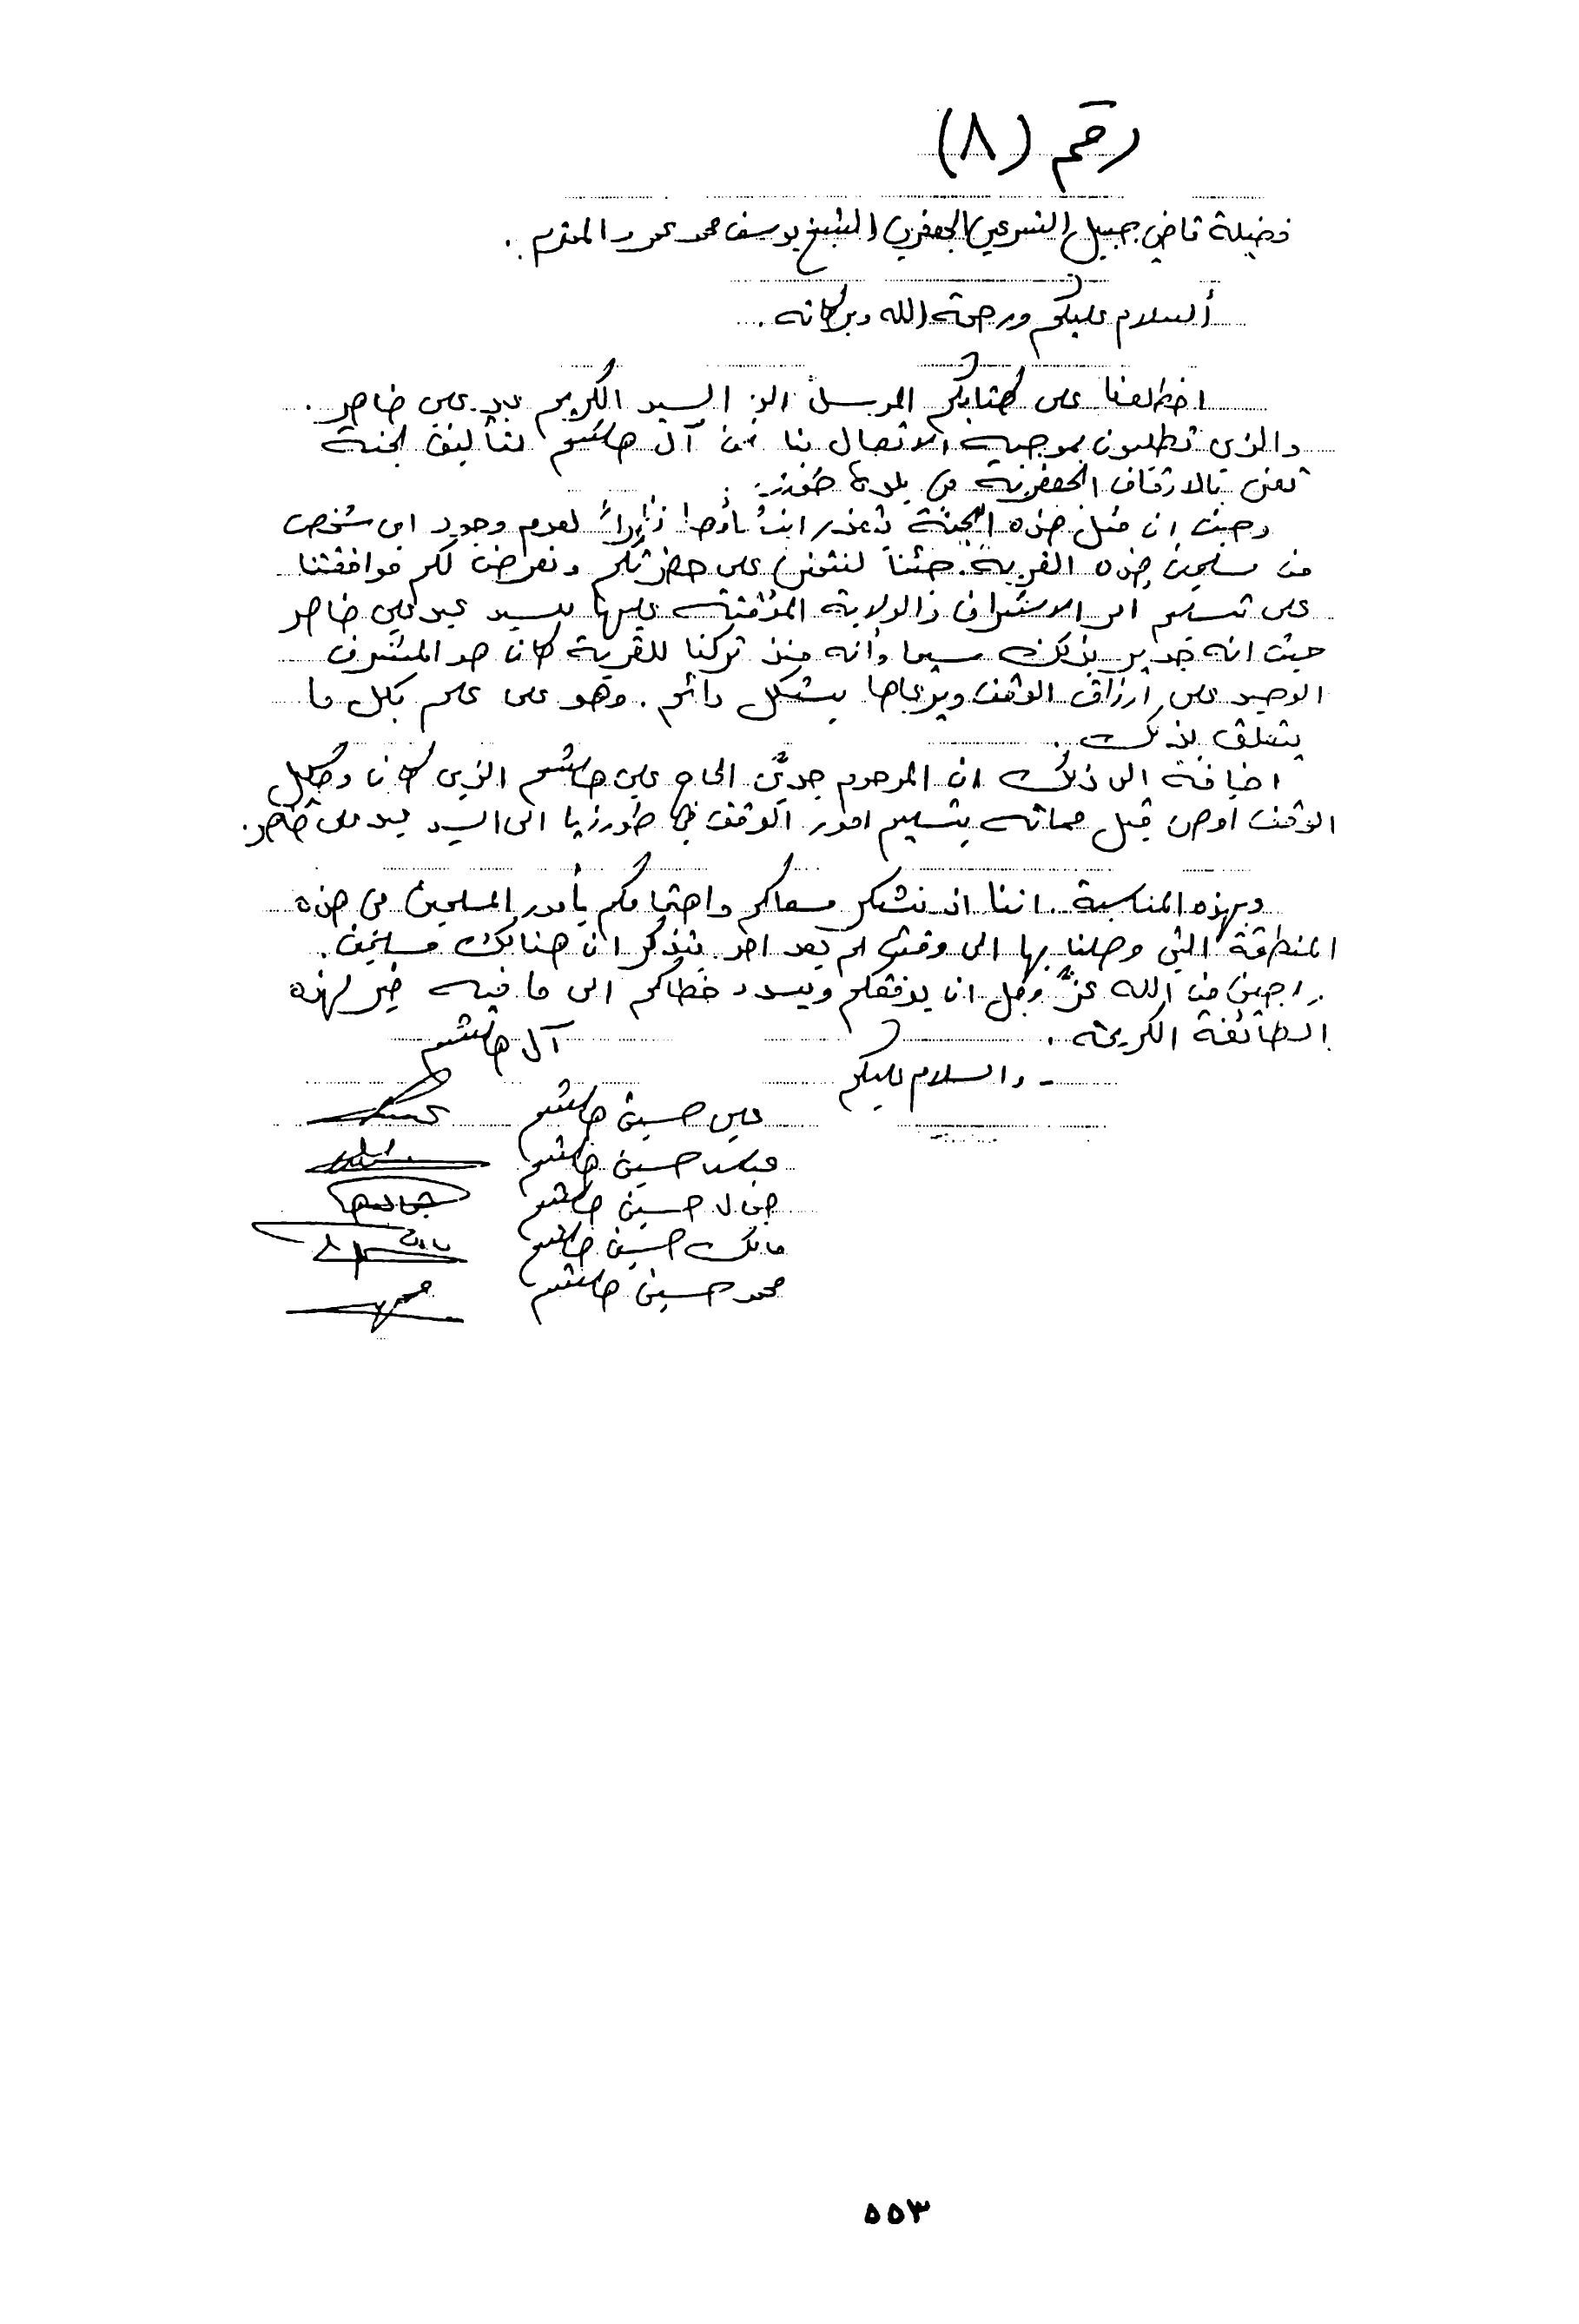 رقم (٨)
فضيلة قاضي جبيل الشرعي الجعفري الشيخ يوسف محمد عمرو المحترم .
ألسلام عليكم ورحمة الله وبركاته .
اطلعنا على كتابكم المرسل الى السيد الكريم عبد علي ضاهر .
والذي تطلبون بموجبه الاتصال بنا نحن آل هاشم لتأليف لجنة
تعنى بالاوقاف الجعفرية في بلدة
وحيث ان مثل هذه اللجنة تعذر لعدم وجود اي شخص
من مسلمين هذه القرية. جئنا لنتمنى على حضرتكم ونعرض لكم موافقتنا
على تسليم امر الاشراف والولاية المؤقتة عليها للسيد عبد علي ضاهر
حيث انه جدير بذلك سيما وأنه منذ تركنا للقرية كان هو المشرف
الوحيد على أرزاق الوقف ويرعاها بشكل دائم . وهو على علم بكل ما
يتعلق بذلك .
اضافة الى ذلك ان المرحوم جديّ الحاج علي هاشم الذي كان وكيل
الوقف اوصى قبل مماته بتسليم امور الوقف في طورزيا الى السيد عبد علي ضاهر.
وبهذه المناسبة . اننا اذ نشكر مسعاكم واهتمامكم بأمور المسلمين في هذه
المنطقة التي وصلنا بها الى وقت لم يعد احد يتذكر ان هنالك مسلمين .
راجين من الله عزّ وجل ان يوفقكم ويسدد خطاكم الى ما فيه خير لهذه
الطائفة الكريمة .
آل هاشم
- والسلام عليكم
علي حسين هاشم
عباس حسين هاشم
جمال حسين هاشم
مالك حسين هاشم
محمد حسين هاشم
٥٥٣